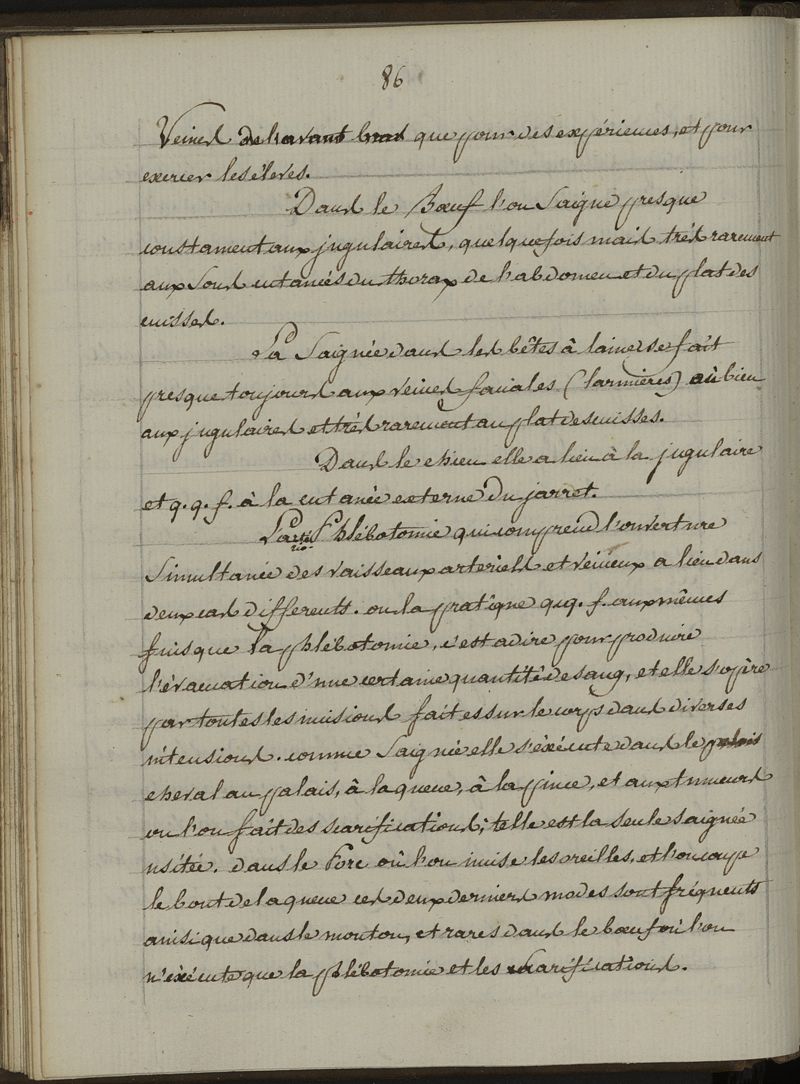 86
Veines de l'avant bras que pour des expériences, et pour
exercer les élèves.
Dans le Bœuf l'on Saigne presque
constament aux jugulaires, quelquefois mais très rarement
aux Sous cutanées du thorax de l'abdomen et du plat des
cuisses.
La Saignée dans les bêtes à laine se fait
presque toujours aux veines faciales (larmières) où bien
aux jugulaires et très rarement au plat des cuisses.
Dans le chien elle a lieu à la jugulaire
et q. q. f. à la cutanée externe du jarret.
La Phlébotomie qui comprend l'ouverture
Simultanée des vaisseaux arteriels et veineux a lieu dans
deux cas differents. on la pratique q.q. f. aux mêmes
fins que la phlébotomie, c'est a dire pour produire
l'évacuation d'une certaine quantité de sang, et elle s'opère
par toutes les incisions faites sur le corps dans diverses
intensions. comme Saignée elle s'éxécute dans le palais
cheval au palais, à la queue, à la pince, et aux tumeurs
ou l'on fait des scarifications; telle est la seule saignée
usitée. dans le Porc où l'on incise les oreilles, et l'on coupe
le bout de la queue ces deux derniers modes sont fréquents
ainsi que dans le mouton, et rares dans le bœuf où l'on
n'éxécute que la phlébotomie et les scarifications.